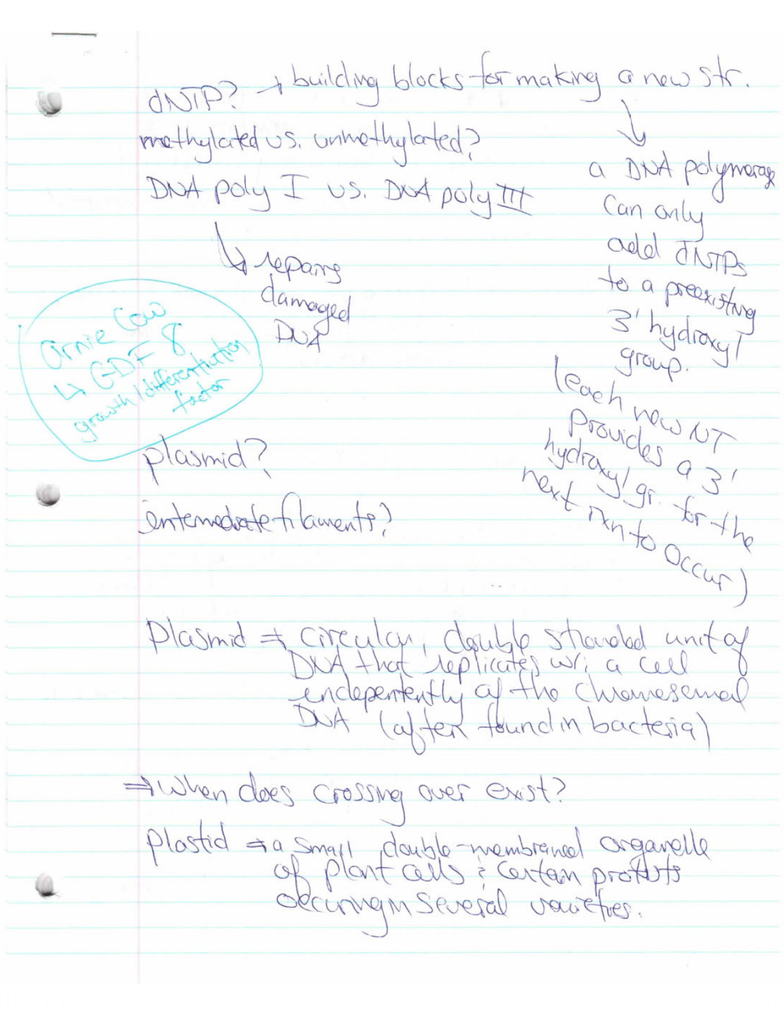 dNTP? → building blocks for making a new str.
methylated vs. unmethylated?
DNA poly I vs. DNA poly III
↳ repairs
damaged
DNA
↓
a DNA polymerase
can only
add dNTPs
to a preexisting
3' hydroxyl
group.
(each new NT
provides a 3'
hydroxyl gr. for the
next rxn to occur)
Ornie Cow
↳ GDF 8
growth/differentiation
factor
plasmid?
intemediate filaments?
Plasmid ⇒ circular, double stranded unit of
DNA that replicates w/i a cell
independently of the chromosomal
DNA (often found in bacteria)
⇒ When does crossing over exist?
Plastid ⇒ a small, double-membraned organelle
of plant cells & certain protists
occuring in several varieties.